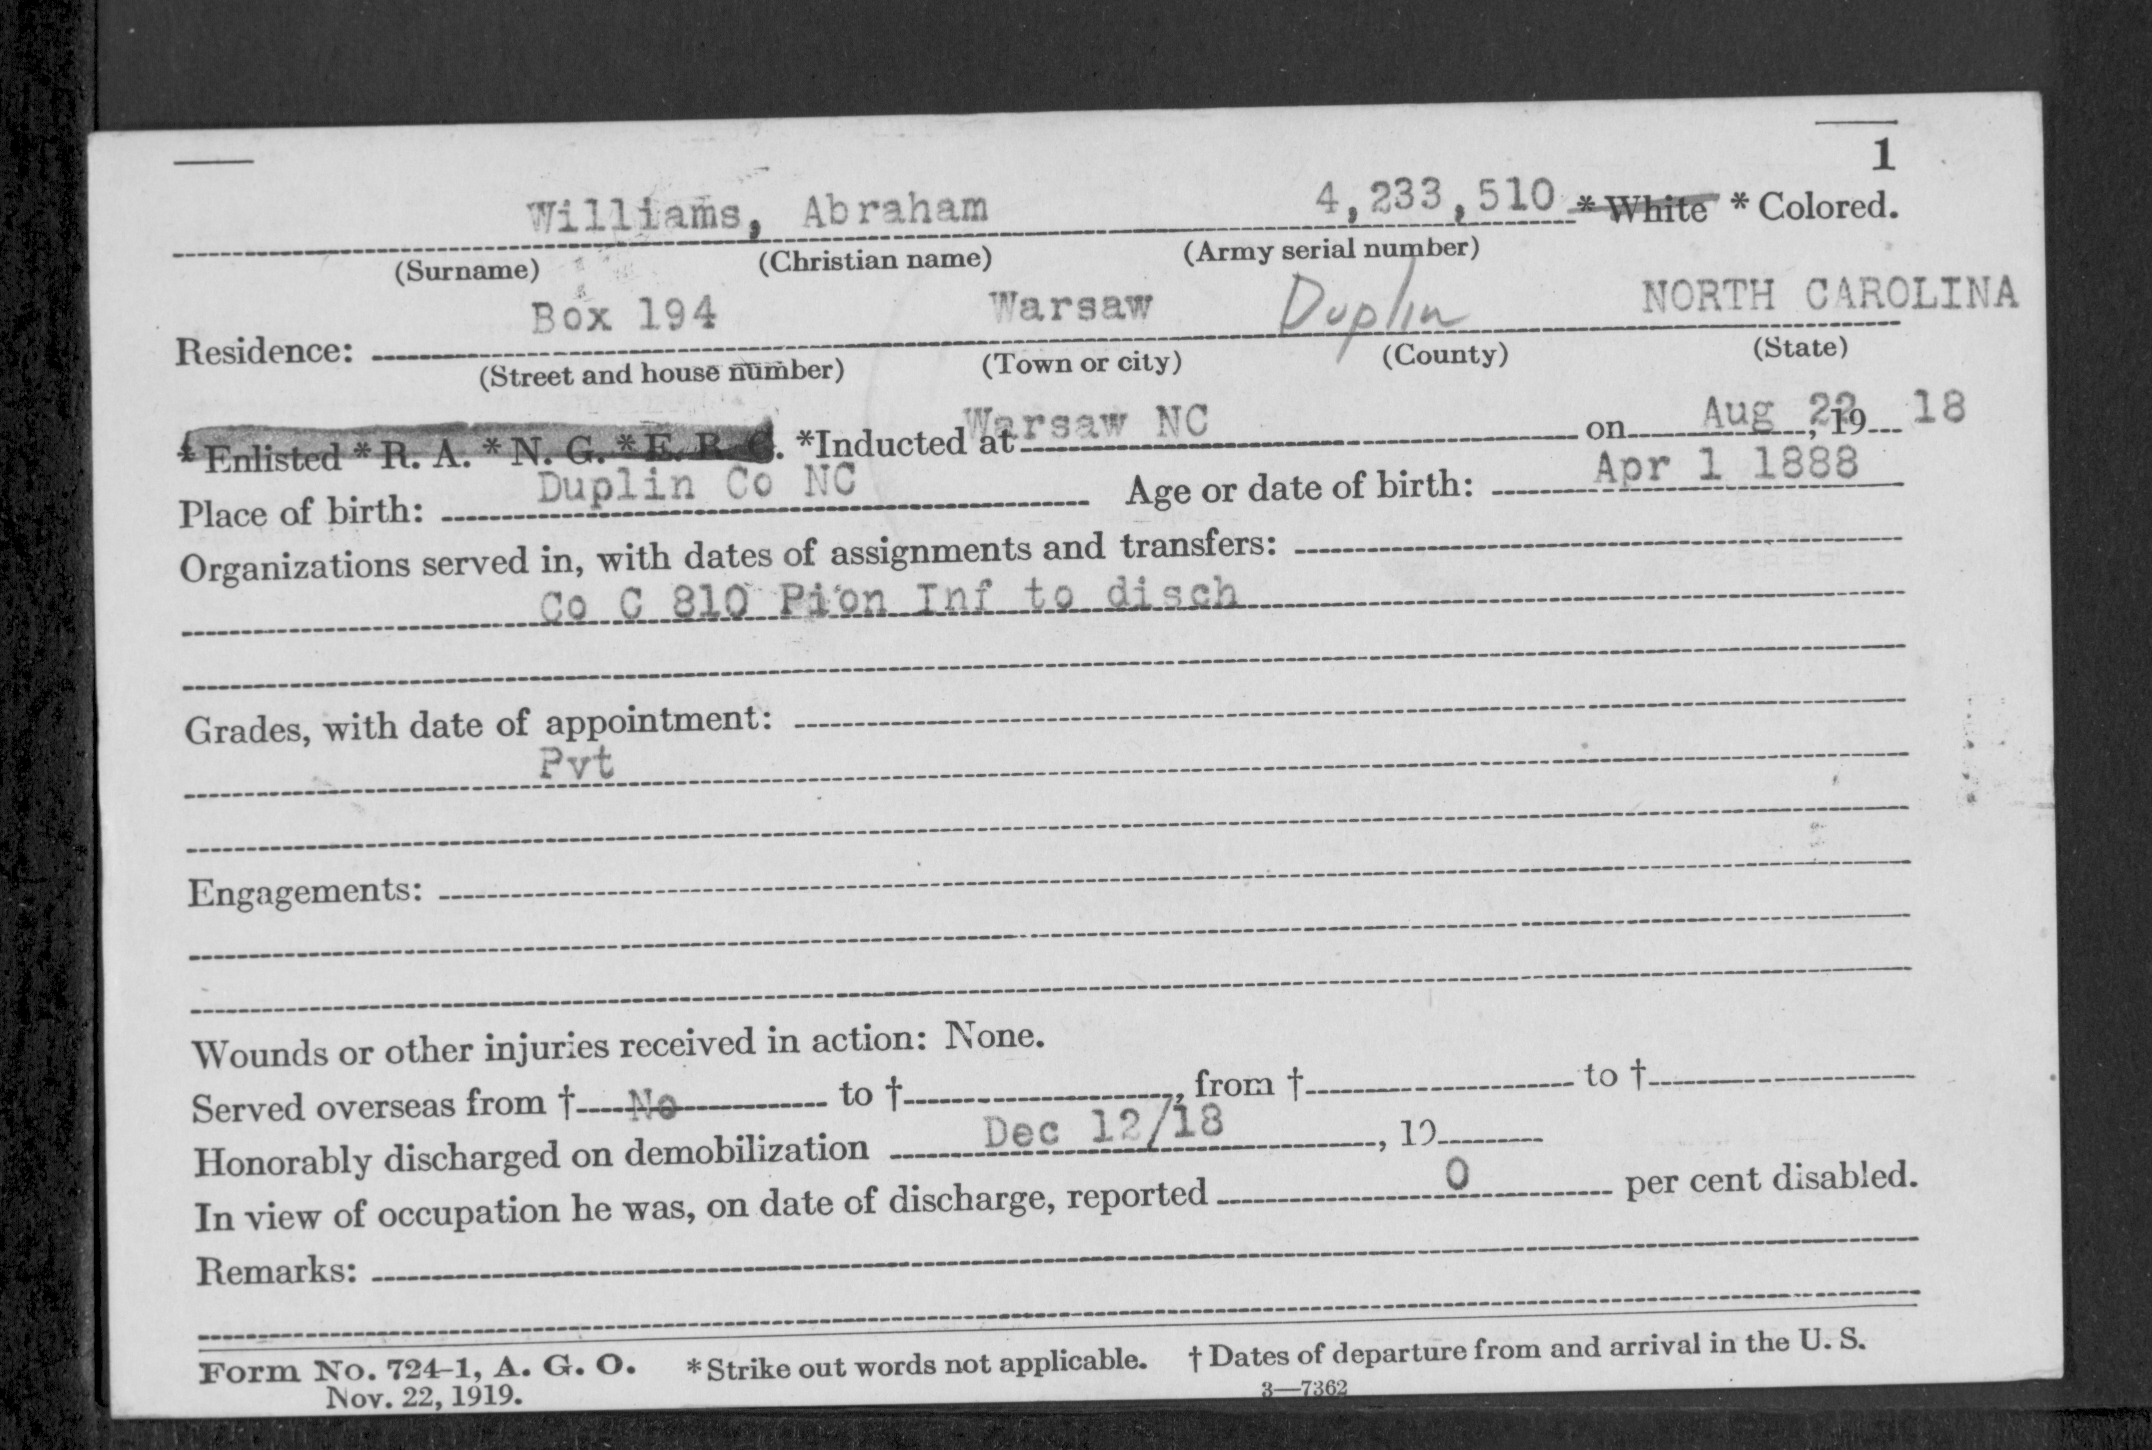 1
Williams, Abraham 4,233,510 * White * Colored.
(Surname) (Christian name) (Army serial number)
Residence: Box 194 Warsaw Duplin NORTH CAROLINA
(Street and house number) (Town or city) (County) (State)
* Enlisted * R. A. * N. G. * E. R. C. *Inducted at Warsaw NC on Aug 22, 19 18
Place of birth: Duplin Co NC Age or date of birth: Apr 1 1888
Organizations served in, with dates of assignments and transfers:
Co C 810 Pion Inf to disch
Grades, with date of appointment:
Pvt
Engagements:
Wounds or other injuries received in action: None.
Served overseas from † No to †, from † to †
Honorably discharged on demobilization Dec 12/18, 19
In view of occupation he was, on date of discharge, reported 0 per cent disabled.
Remarks:
Form No. 724-1, A. G. O. * Strike out words not applicable. † Dates of departure from and arrival in the U. S.
Nov. 22, 1919. 3—7362